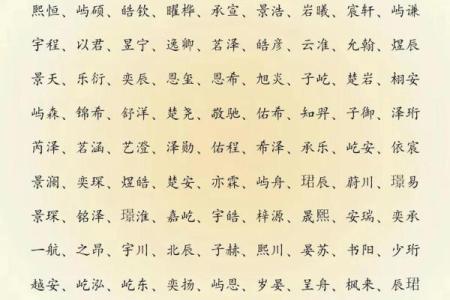 熙恒、屿硕、皓钦、曜桦、承宣、景浩、岩曦、宸轩、屿谦
宇程、以君、昱宁、逸卿、茗泽、皓彦、云准、允翰、煜辰
景天、乐衍、奕辰、恩玺、恩希、旭炎、子屹、楚岩、栩安
屿森、锦希、舒洋、楚尧、敬驰、佑希、知羿、子御、泽珩
芮泽、茗涵、艺澄、泽勋、佑程、希泽、承乐、屹安、依宸
景澜、奕琛、煜皓、楚安、亦霖、屿舟、珺辰、蔚川、璟易
景琛、铭泽、璟淮、嘉屹、宇皓、梓源、晟熙、安瑞、奕承
一航、之昂、宇川、北辰、子赫、熙川、晏苏、书阳、少珩
越安、屹泓、屹东、奕扬、屿恩、岁晏、呈舟、枫来、辰珺